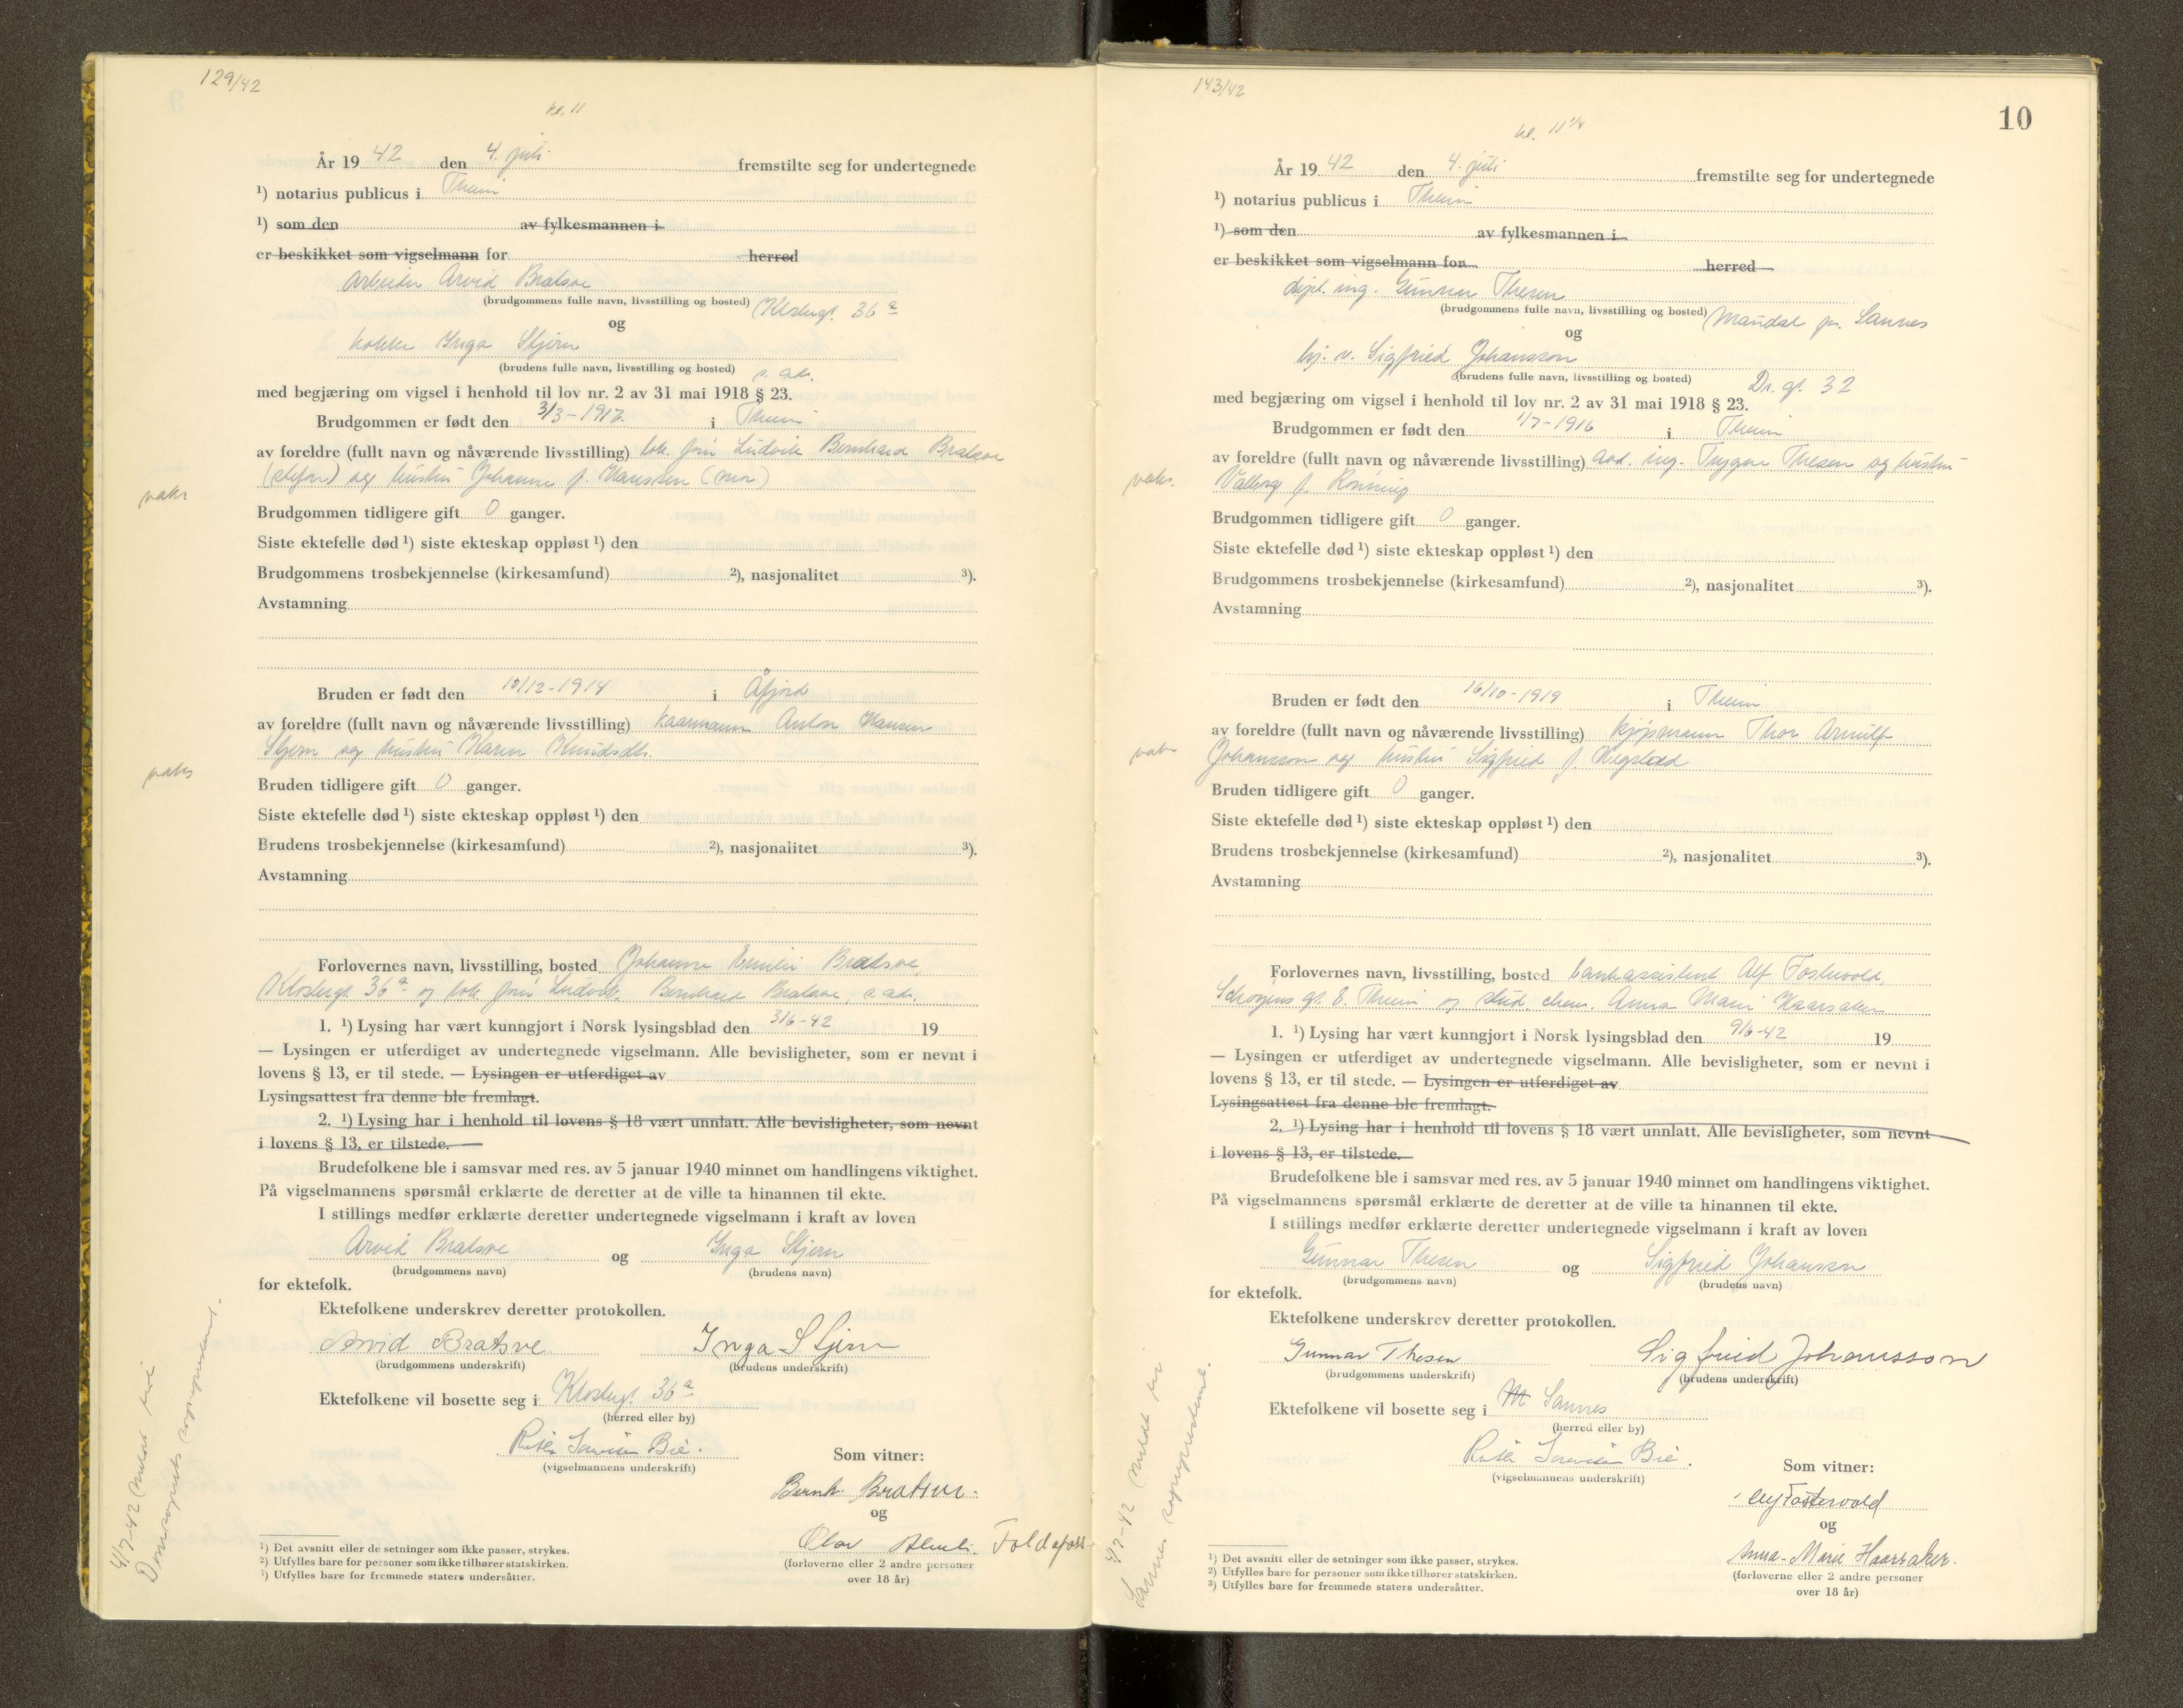 129/42
kl. 11
År 19 42 den 4. juli fremstilte seg for undertegnede
¹) notarius publicus i Thrim
¹) som den av fylkesmannen i
er beskikket som vigselmann for herred
arbeider Arvid Bratsve
(brudgommens fulle navn, livsstilling og bosted) Klostergt. 36 a
og
kokke Inga Stjern
(brudens fulle navn, livsstilling og bosted) s. adr.
med begjæring om vigsel i henhold til lov nr. 2 av 31 mai 1918 § 23.
Brudgommen er født den 3/3-1917 i Thrim
av foreldre (fullt navn og nåværende livsstilling) lok. Ludvik Bernhard Bratsve
(stefar) og hustru Johanne f. Hansen (mor)
vaks
Brudgommen tidligere gift 0 ganger.
Siste ektefelle død ¹) siste ekteskap oppløst ¹) den
Brudgommens trosbekjennelse (kirkesamfund) ²), nasjonalitet ³).
Avstamning
Bruden er født den 10/12-1914 i Åfjord
av foreldre (fullt navn og nåværende livsstilling) kaarmann Anton Hansen
Stjern og hustru Karen Knudsdtr.
vaks
Bruden tidligere gift 0 ganger.
Siste ektefelle død ¹) siste ekteskap oppløst ¹) den
Brudens trosbekjennelse (kirkesamfund) ²), nasjonalitet ³).
Avstamning
Forlovernes navn, livsstilling, bosted Johanne Emilie Bratsve,
Klostergt. 36 a og lok. Ludvik Bernhard Bratsve, s. adr.
1. ¹) Lysing har vært kunngjort i Norsk lysingsblad den 3/6-42 19
— Lysingen er utferdiget av undertegnede vigselmann. Alle bevisligheter, som er nevnt i
lovens § 13, er til stede. — Lysingen er utferdiget av
Lysingsattest fra denne ble fremlagt.
2. ¹) Lysing har i henhold til lovens § 18 vært unnlatt. Alle bevisligheter, som nevnt
i lovens § 13, er tilstede.
Brudefolkene ble i samsvar med res. av 5 januar 1940 minnet om handlingens viktighet.
På vigselmannens spørsmål erklærte de deretter at de ville ta hinannen til ekte.
I stillings medfør erklærte deretter undertegnede vigselmann i kraft av loven
Arvid Bratsve og Inga Stjern
(brudgommens navn) (brudens navn)
for ektefolk.
Ektefolkene underskrev deretter protokollen.
Arvid Bratsve Inga Stjern
(brudgommens underskrift) (brudens underskrift)
Ektefolkene vil bosette seg i Klostergt. 36 a
(herred eller by)
(vigselmannens underskrift)
Som vitner:
Bernh. Bratsve.
og
Olav
(forloverne eller 2 andre personer
over 18 år)
¹) Det avsnitt eller de setninger som ikke passer, strykes.
²) Utfylles bare for personer som ikke tilhører statskirken.
³) Utfylles bare for fremmede staters undersåtter.
4/7-42 meldt til
Domsognets sogneprestemb.
143/42
10
kl. 11 1/4
År 19 42 den 4. juli fremstilte seg for undertegnede
¹) notarius publicus i Thrim
¹) som den av fylkesmannen i
er beskikket som vigselmann for herred
dipl. ing. Gunnar Thesen
(brudgommens fulle navn, livsstilling og bosted) Mandal pr. Sannes
og
hj. v. Sigfried Johansson
(brudens fulle navn, livsstilling og bosted) Dr. gt. 32
med begjæring om vigsel i henhold til lov nr. 2 av 31 mai 1918 § 23.
Brudgommen er født den 1/7-1916 i Thrim
av foreldre (fullt navn og nåværende livsstilling) avd. ing. Trygve Thesen og hustru
Valborg f. Rønning
vaks.
Brudgommen tidligere gift 0 ganger.
Siste ektefelle død ¹) siste ekteskap oppløst ¹) den
Brudgommens trosbekjennelse (kirkesamfund) ²), nasjonalitet ³).
Avstamning
Bruden er født den 16/10-1919 i Thrim
av foreldre (fullt navn og nåværende livsstilling) kjøpmann Thor Arnulf
Johansson og hustru Sigfried f. Hegstad
vaks
Bruden tidligere gift 0 ganger.
Siste ektefelle død ¹) siste ekteskap oppløst ¹) den
Brudens trosbekjennelse (kirkesamfund) ²), nasjonalitet ³).
Avstamning
Forlovernes navn, livsstilling, bosted bankassistent Alf Fostervold,
gt. 8. Thrim og stud. chem. Anna Marie Haarsaker
1. ¹) Lysing har vært kunngjort i Norsk lysingsblad den 9/6-42 19
— Lysingen er utferdiget av undertegnede vigselmann. Alle bevisligheter, som er nevnt i
lovens § 13, er til stede. — Lysingen er utferdiget av
Lysingsattest fra denne ble fremlagt.
2. ¹) Lysing har i henhold til lovens § 18 vært unnlatt. Alle bevisligheter, som nevnt
i lovens § 13, er tilstede.
Brudefolkene ble i samsvar med res. av 5 januar 1940 minnet om handlingens viktighet.
På vigselmannens spørsmål erklærte de deretter at de ville ta hinannen til ekte.
I stillings medfør erklærte deretter undertegnede vigselmann i kraft av loven
Gunnar Thesen og Sigfried Johansson
(brudgommens navn) (brudens navn)
for ektefolk.
Ektefolkene underskrev deretter protokollen.
Gunnar Thesen Sigfried Johansson
(brudgommens underskrift) (brudens underskrift)
Ektefolkene vil bosette seg i Sannes
(herred eller by)
(vigselmannens underskrift)
Som vitner:
Alf Fostervold
og
Anna-Marie Haarsaker.
(forloverne eller 2 andre personer
over 18 år)
¹) Det avsnitt eller de setninger som ikke passer, strykes.
²) Utfylles bare for personer som ikke tilhører statskirken.
³) Utfylles bare for fremmede staters undersåtter.
4/7-42 meldt til
Sannes sogneprestemb.